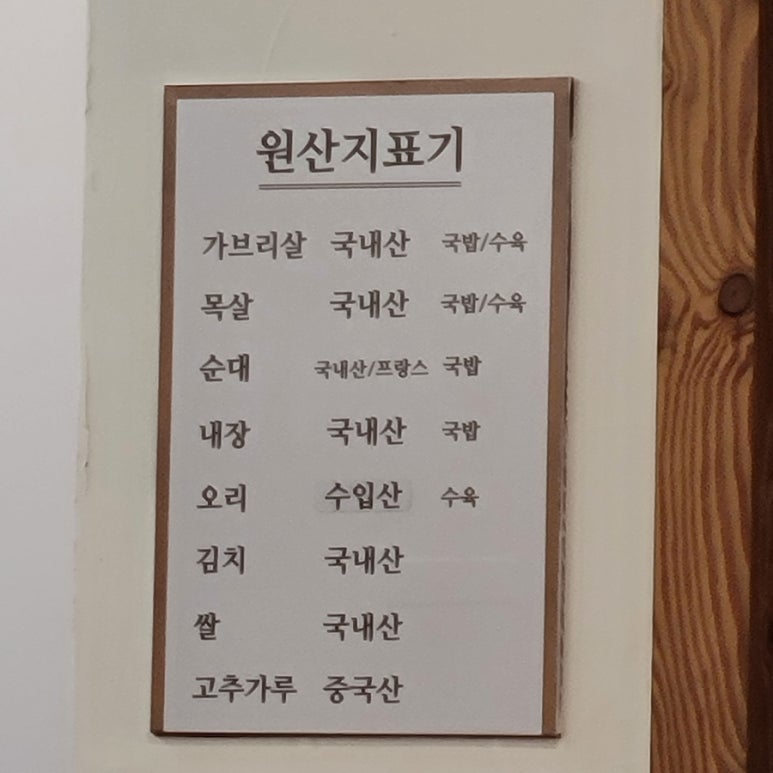 원산지표기
가브리살 국내산 국밥/수육
목살 국내산 국밥/수육
순대 국내산/프랑스 국밥
내장 국내산 국밥
오리 수입산 수육
김치 국내산
쌀 국내산
고추가루 중국산